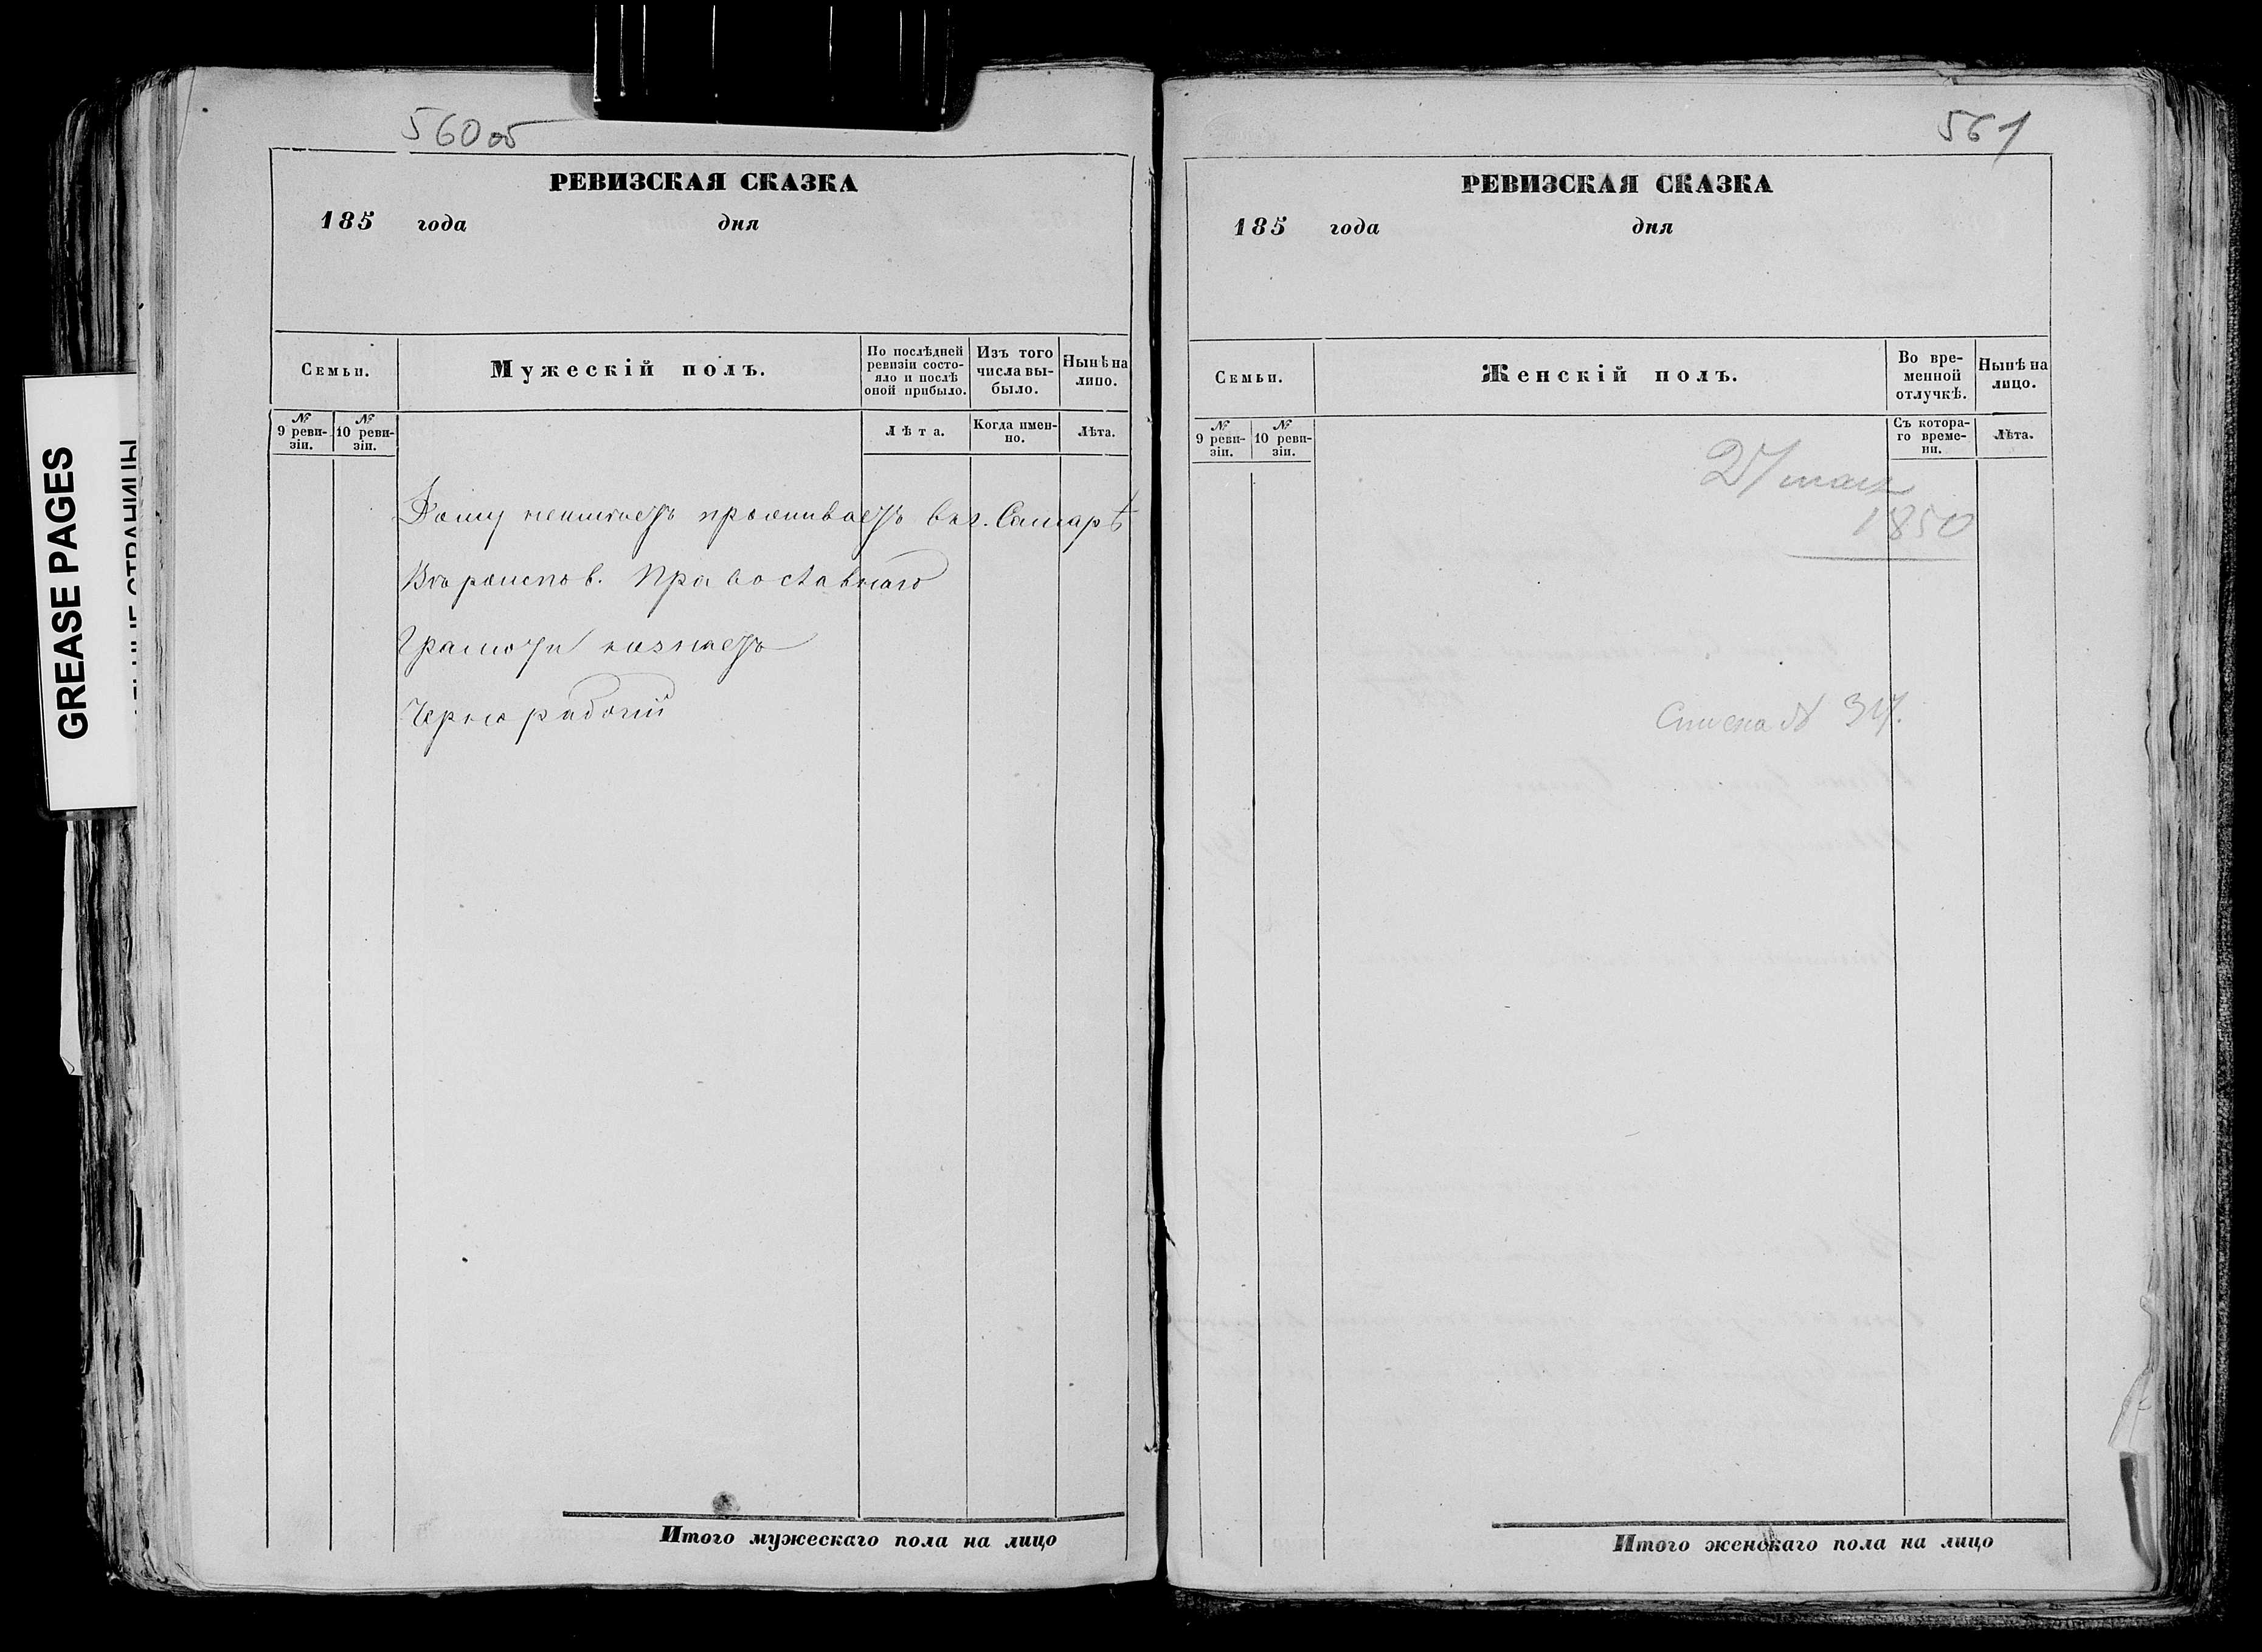 560 об
РЕВИЗСКАЯ СКАЗКА
185 года дня
Семьи.
Мужескій полъ.
По послѣдней ревизіи состояло и послѣ оной прибыло.
Изъ того числа выбыло.
Нынѣ на лицо.
№ 9 ревизіи.
№ 10 ревизіи.
Лѣта.
Когда именно.
Лѣта.
Дому неимѣетъ проживаетъ в г. Самарѣ
Вѣроиспов. Православнаго
Грамоти незнаетъ
Чернорабочій
Итого мужескаго пола на лицо
561
РЕВИЗСКАЯ СКАЗКА
185 года дня
Семьи.
Женскій полъ.
Во временной отлучкѣ.
Нынѣ на лицо.
№ 9 ревизіи.
№ 10 ревизіи.
Съ котораго времени.
Лѣта.
27
1850
Итого женскаго пола на лицо
GREASE PAGES